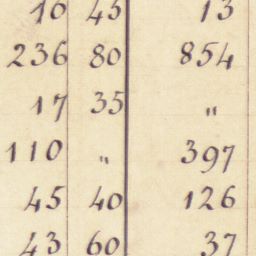 10 45 13
236 80 854
17 35 "
110 " 397
45 40 126
43 60 37